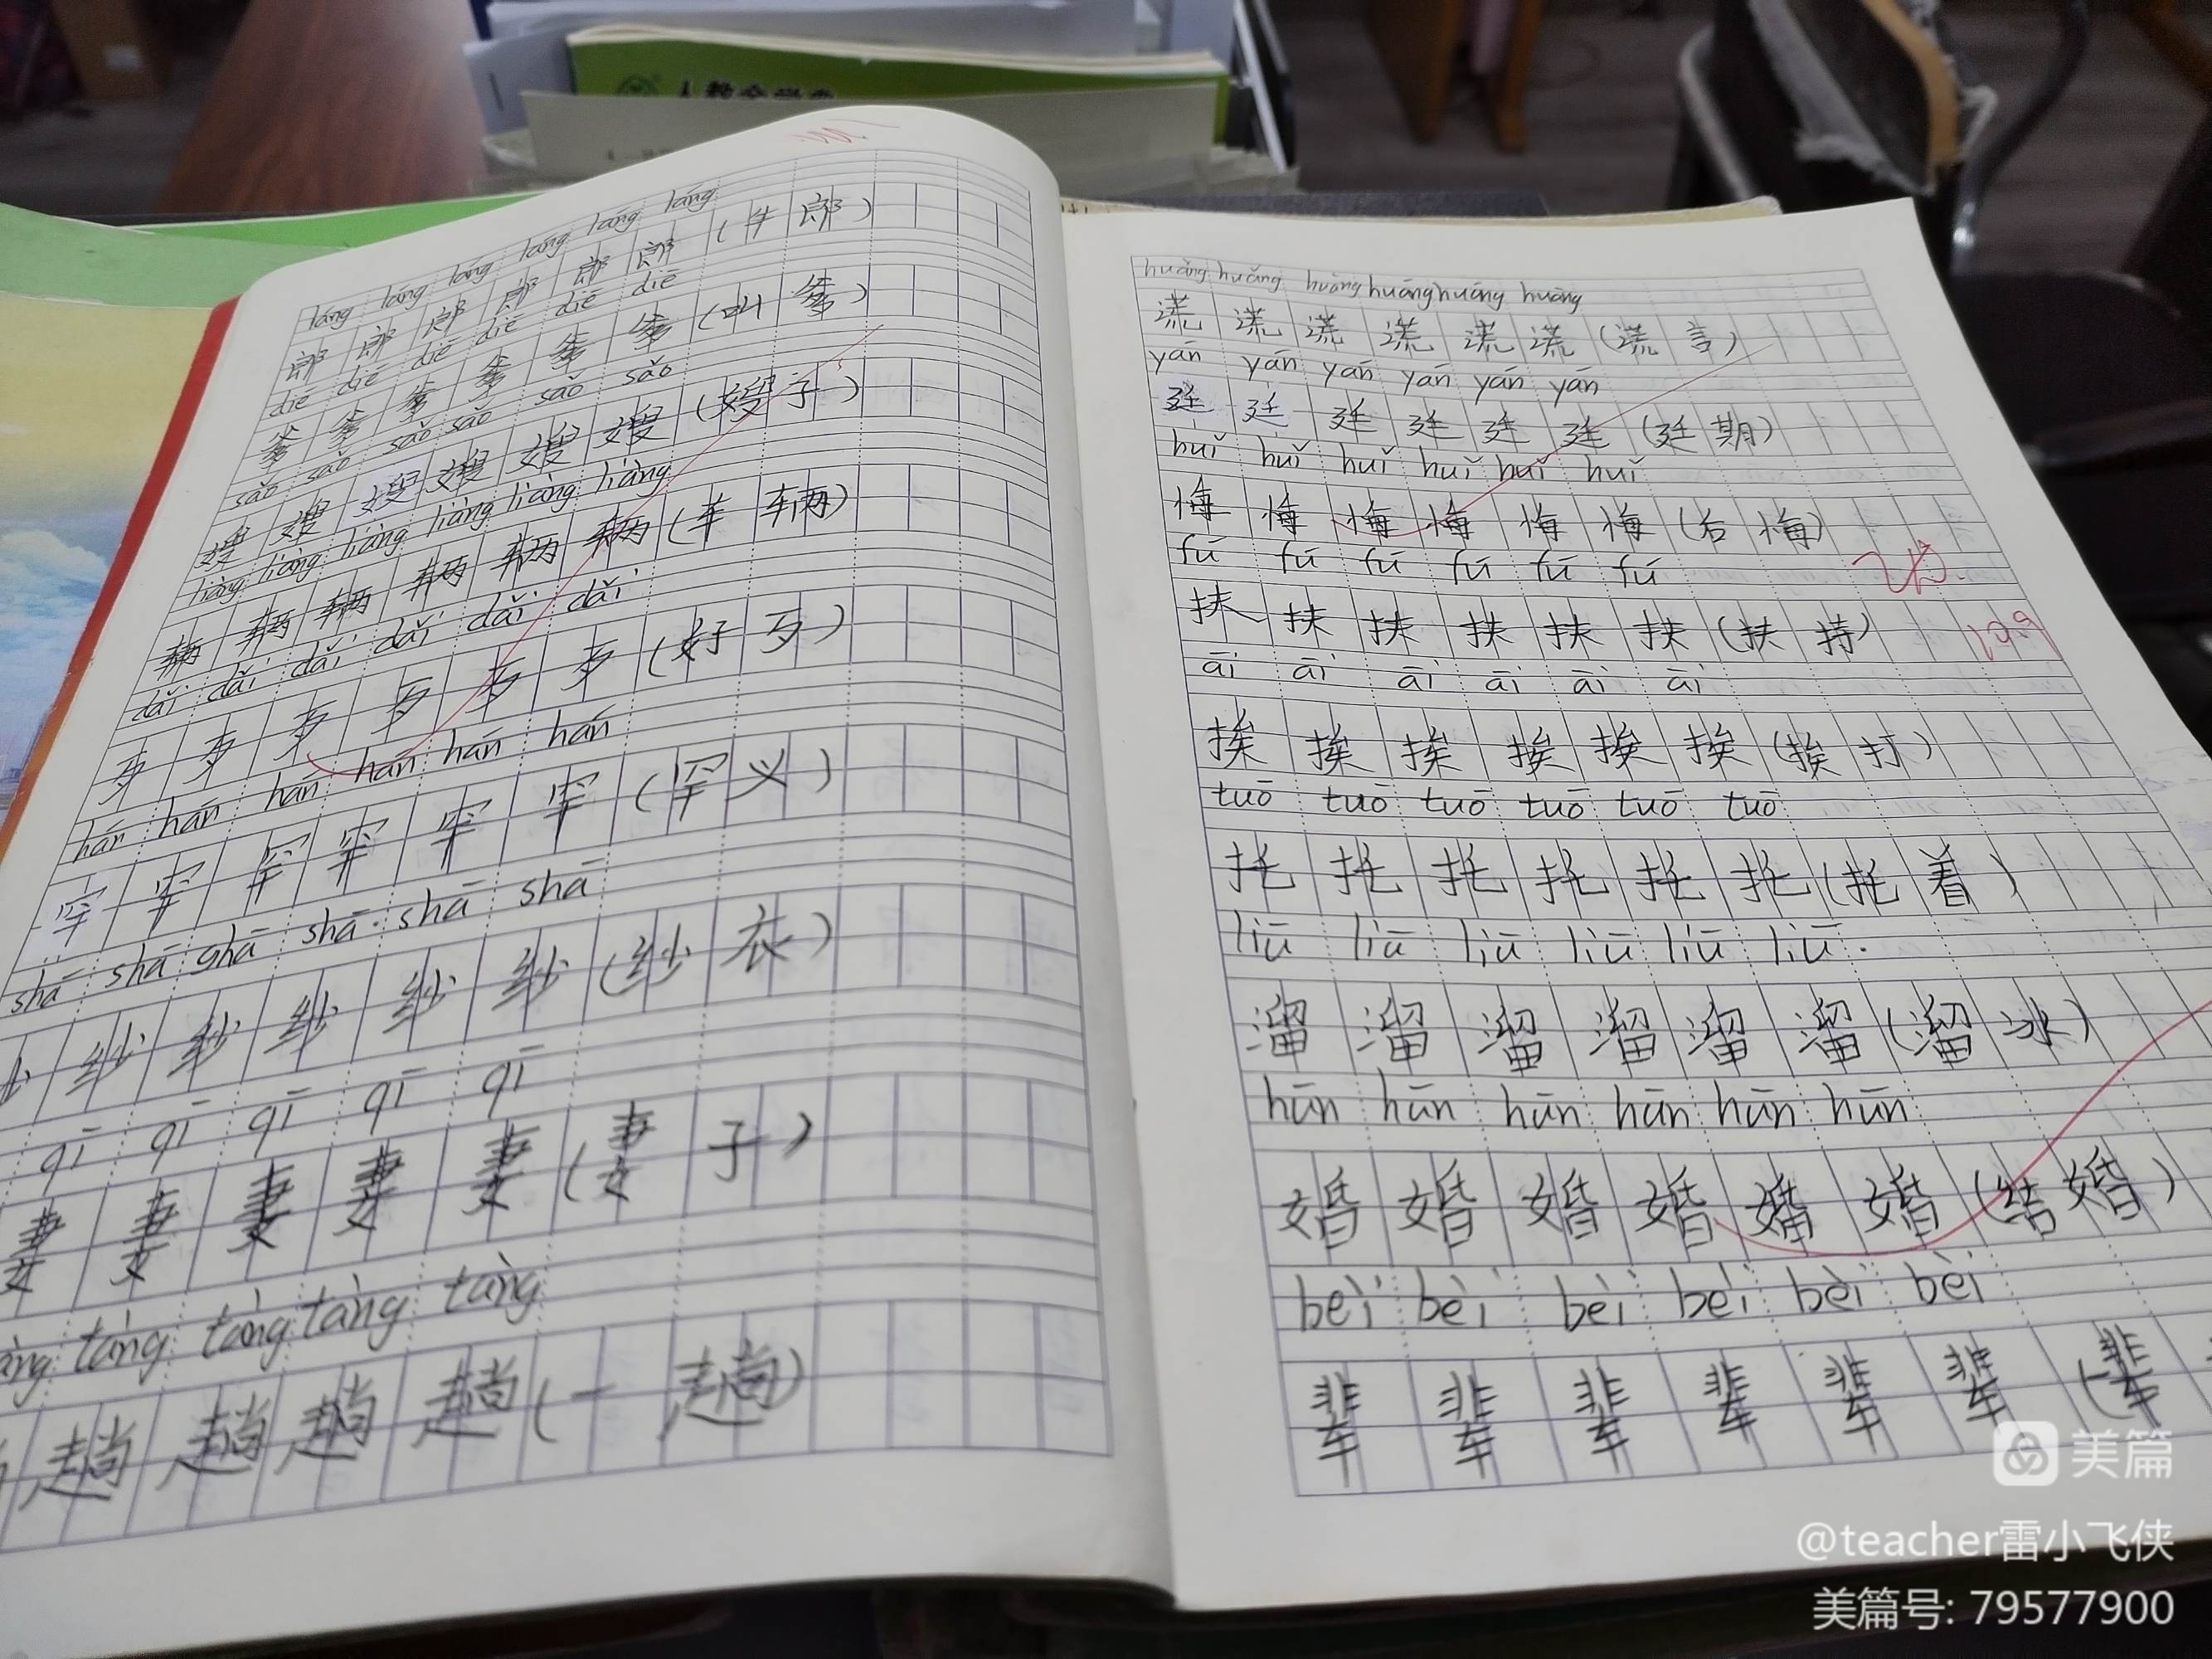 láng láng láng láng láng láng
郎 郎 郎 郎 郎 郎 (牛 郎)
diē diē diē diē diē diē
爹 爹 爹 爹 爹 爹 (叫 爹)
sǎo sǎo sǎo sǎo sǎo sǎo
嫂 嫂 嫂 嫂 嫂 嫂 (嫂 子)
liàng liàng liàng liàng liàng liàng
辆 辆 辆 辆 辆 辆 (车 辆)
dǎi dǎi dǎi dǎi dǎi dǎi
歹 歹 歹 歹 歹 歹 (好 歹)
hán hán hán hán hán hán
罕 罕 罕 罕 罕 罕 (罕 义)
shā shā shā shā shā shā
纱 纱 纱 纱 纱 纱 (纱 衣)
qī qī qī qī qī
妻 妻 妻 妻 妻 (妻 子)
tàng tàng tàng tàng
趟 趟 趟 趟 (一 趟)
huǎng huǎng huǎng huǎng huǎng huǎng
谎 谎 谎 谎 谎 谎 (谎 言)
yán yán yán yán yán yán
延 延 延 延 延 延 (延 期)
huǐ huǐ huǐ huǐ huǐ huǐ
悔 悔 悔 悔 悔 悔 (后 悔)
fú fú fú fú fú fú
扶 扶 扶 扶 扶 扶 (扶 持)
12.9
āi āi āi āi āi āi
挨 挨 挨 挨 挨 挨 (挨 打)
tuō tuō tuō tuō tuō tuō
托 托 托 托 托 托 (托 着)
liū liū liū liū liū liū
溜 溜 溜 溜 溜 溜 (溜 冰)
hūn hūn hūn hūn hūn hūn
婚 婚 婚 婚 婚 婚 (结 婚)
bèi bèi bèi bèi bèi bèi
辈 辈 辈 辈 辈 辈 (辈
美篇
@teacher雷小飞侠
美篇号: 79577900